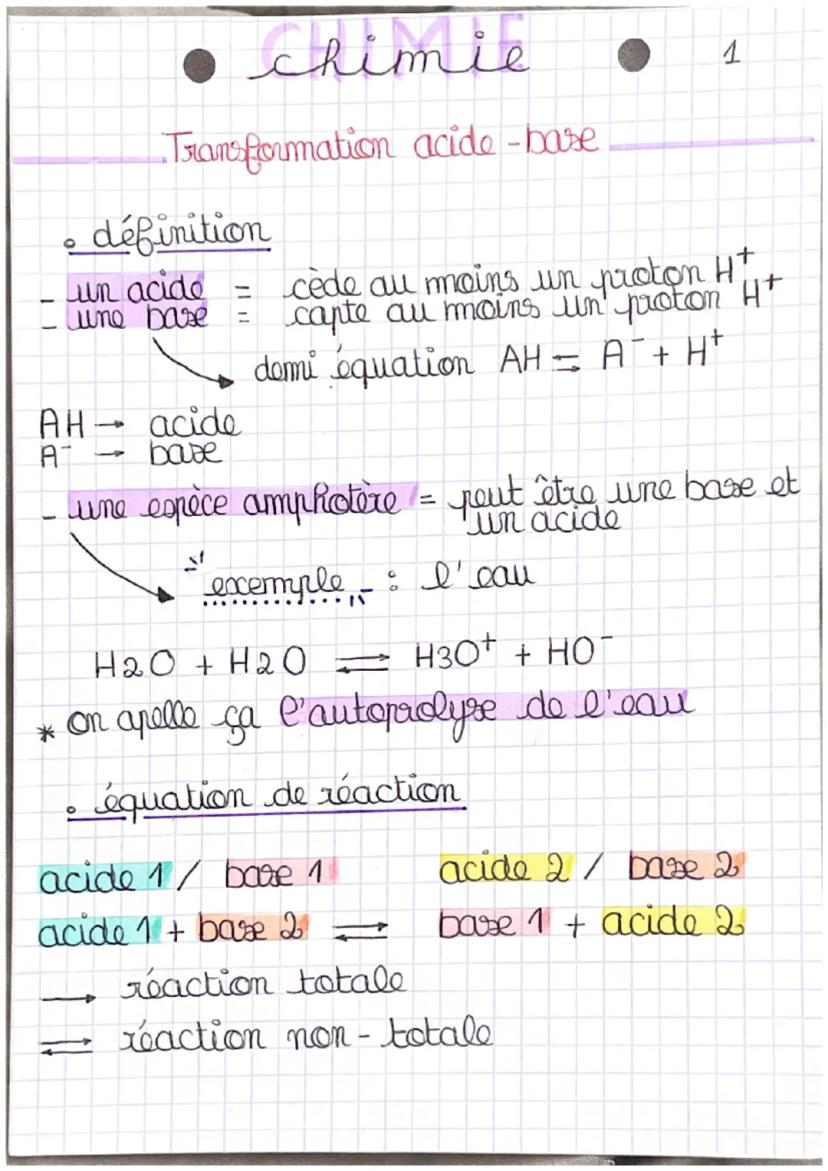 CHIMIE
chimie
1
Transformation acide-base
• définition
- un acide = cède au moins un proton H⁺
- une base = capte au moins un proton H⁺
demi équation AH ⇌ A⁻ + H⁺
AH → acide
A⁻ → base
- une espèce amphotère = peut être une base et
un acide
exemple : l'eau
H2O + H2O ⇌ H3O⁺ + HO⁻
* on apelle ça l'autoprolyse de l'eau
• équation de réaction
acide 1 / base 1 acide 2 / base 2
acide 1 + base 2 ⇌ base 1 + acide 2
→ réaction totale
⇌ réaction non-totale